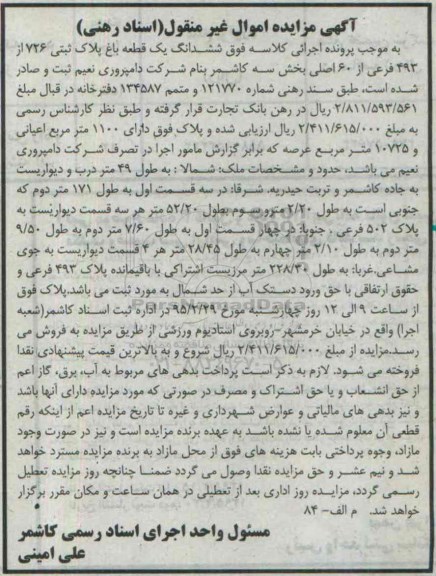 آگهی مزایده اموال غیر منقول(اسناد رهنی)
به موجب پرونده اجرائی کلاسه فوق ششدانگ یک قطعه باغ پلاک ثبتی ۷۲۶ از
۴۹۳ فرعی از ۶۰ اصلی بخش سه کاشمر بنام شرکت دامپروری نعیم ثبت و صادر
شده است، طبق سند رهنی شماره ۱۲۱۷۷۰ و متمم ۱۳۴۵۸۷ دفترخانه در قبال مبلغ
۲/۸۱۱/۵۹۳/۵۶۱ ریال در رهن بانک تجارت قرار گرفته و طبق نظر کارشناس رسمی
به مبلغ ۲/۴۱۱/۶۱۵/۰۰۰ ریال ارزیابی شده و پلاک فوق دارای ۱۱۰۰ متر مربع اعیانی
و ۱۰۷۲۵ متر مربع عرصه که برابر گزارش مامور اجرا در تصرف شرکت دامپروری
نعیم می باشد، حدود و مشخصات ملک: شمالا : به طول ۴۹ متر درب و دیواریست
به جاده کاشمر و تربت حیدریه. شرقا: در سه قسمت اول به طول ۱۷۱ متر دوم که
جنوبی است به طول ۲/۲۰ متر سوم بطول ۵۲/۲۰ متر هر سه قسمت دیواریست به
پلاک ۵۰۲ فرعی . جنوبا: در چهار قسمت اول به طول ۷/۶۰ متر دوم به طول ۹/۵۰
متر دوم به طول ۲/۱۰ متر چهارم به طول ۲۸/۴۵ متر هر ۴ قسمت دیواریست به جوی
مشاعی.غربا: به طول ۲۲۸/۳۰ متر مرزیست اشتراکی با باقیمانده پلاک ۴۹۳ فرعی و
حقوق ارتفاقی با حق ورود دستک آب از حد شمال به مورد ثبت می باشد.پلاک فوق
از ساعت ۹ الی ۱۲ روز چهارشنبه مورخ ۹۵/۲/۲۹ در اداره ثبت اسناد کاشمر(شعبه
اجرا) واقع در خیابان خرمشهر-روبروی استادیوم ورزشی از طریق مزایده به فروش می
رسد.مزایده از مبلغ ۲/۴۱۱/۶۱۵/۰۰۰ ریال شروع و به بالاترین قیمت پیشنهادی نقدا
فروخته می شود. لازم به ذکر است پرداخت بدهی های مربوط به آب، برق، گاز اعم
از حق انشعاب و یا حق اشتراک و مصرف در صورتی که مورد مزایده دارای آنها باشد
و نیز بدهی های مالیاتی و عوارض شهرداری و غیره تا تاریخ مزایده اعم از اینکه رقم
قطعی آن معلوم شده یا نشده باشد به عهده برنده مزایده است و نیز در صورت وجود
مازاد، وجوه پرداختی بابت هزینه های فوق از محل مازاد به برنده مزایده مسترد خواهد
شد و نیم عشر و حق مزایده نقدا وصول می گردد ضمنا چنانچه روز مزایده تعطیل
رسمی گردد، مزایده روز اداری بعد از تعطیلی در همان ساعت و مکان مقرر برگزار
خواهد شد. م الف- ۸۴
مسئول واحد اجرای اسناد رسمی کاشمر
علی امینی